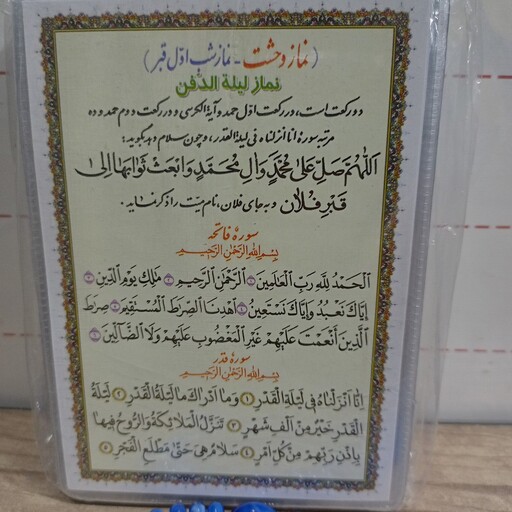 (نماز وحشت - نماز شب اوّل قبر)
نماز لیلة الدّفن
دو رکعت است، در رکعت اوّل حمد و آیة الکرسی و در رکعت دوم حمد و ده
مرتبه سورهٔ انّا انزلناه فی لیلة القدر، و چون سلام دهد بگوید:
اَللّهُمَّ صَلِّ عَلی مُحَمَّدٍ وَ الِ مُحَمَّدٍ وَ ابْعَثْ ثَوابَها اِلی
قَبْرِ فُلان و به جای فلان، نام میّت را ذکر نماید.
سورهٔ فاتحه
بِسْمِ اللهِ الرَّحْمنِ الرَّحیمِ
اَلْحَمْدُ لِلّهِ رَبِّ الْعالَمینَ ﴿۲﴾ اَلرَّحْمنِ الرَّحیمِ ﴿۳﴾ مالِكِ یَوْمِ الدّینِ ﴿۴﴾
اِیّاكَ نَعْبُدُ وَ اِیّاكَ نَسْتَعینُ ﴿۵﴾ اِهْدِنَا الصِّراطَ الْمُسْتَقیمَ ﴿۶﴾ صِراطَ
الَّذینَ اَنْعَمْتَ عَلَیْهِمْ غَیْرِ الْمَغْضُوبِ عَلَیْهِمْ وَلاَ الضّالّینَ ﴿۷﴾
سورهٔ قدر
بِسْمِ اللهِ الرَّحْمنِ الرَّحیمِ
اِنّا اَنْزَلْناهُ فی لَیْلَةِ الْقَدْرِ ﴿۱﴾ وَ ما اَدْراكَ ما لَیْلَةُ الْقَدْرِ ﴿۲﴾ لَیْلَةُ
الْقَدْرِ خَیْرٌ مِنْ اَلْفِ شَهْرٍ ﴿۳﴾ تَنَزَّلُ الْمَلائِكَةُ وَ الرُّوحُ فیها
بِاِذْنِ رَبِّهِمْ مِنْ كُلِّ اَمْرٍ ﴿۴﴾ سَلامٌ هِیَ حَتّی مَطْلَعِ الْفَجْرِ ﴿۵﴾